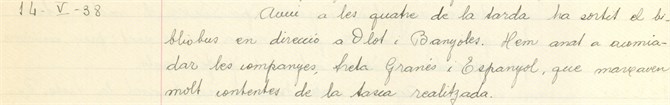 14-V-38 Avui a les quatre de la tarda ha sortit el bi-
bliobus en direcció a Olot i Banyoles. Hem anat a acomia-
dar les companyes, Sreta Granés i Espanyol, que marxaven
molt contentes de la tasca realitzada.